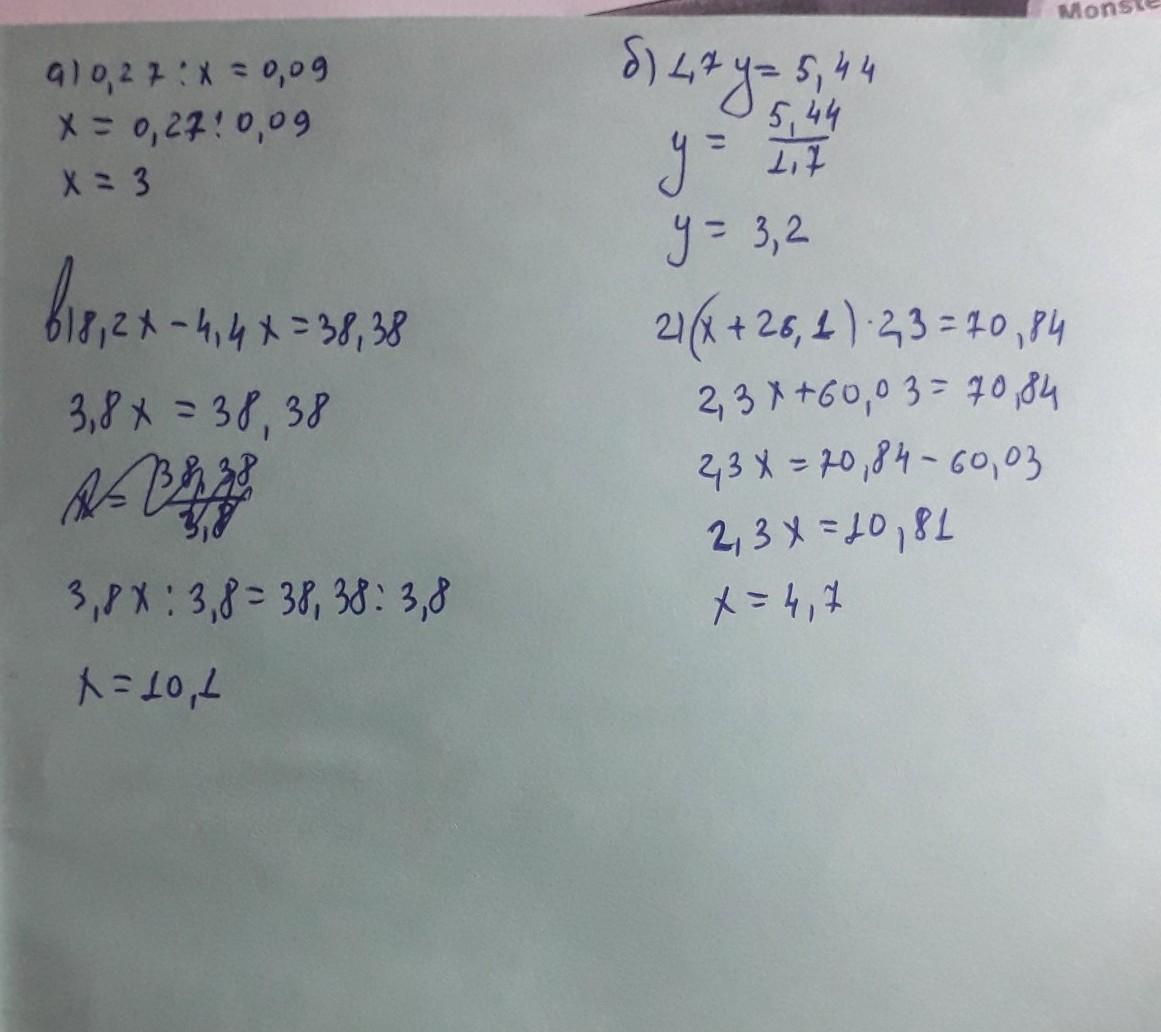 Monste
а) 0,27 : x = 0,09
x = 0,27 : 0,09
x = 3
б) 1,7 y = 5,44
y = 5,44/1,7
y = 3,2
в) 8,2x - 4,4x = 38,38
3,8x = 38,38
x = 38,38/3,8
3,8x : 3,8 = 38,38 : 3,8
x = 10,1
г) (x + 26,1) · 2,3 = 70,84
2,3x + 60,03 = 70,84
2,3x = 70,84 - 60,03
2,3x = 10,81
x = 4,7